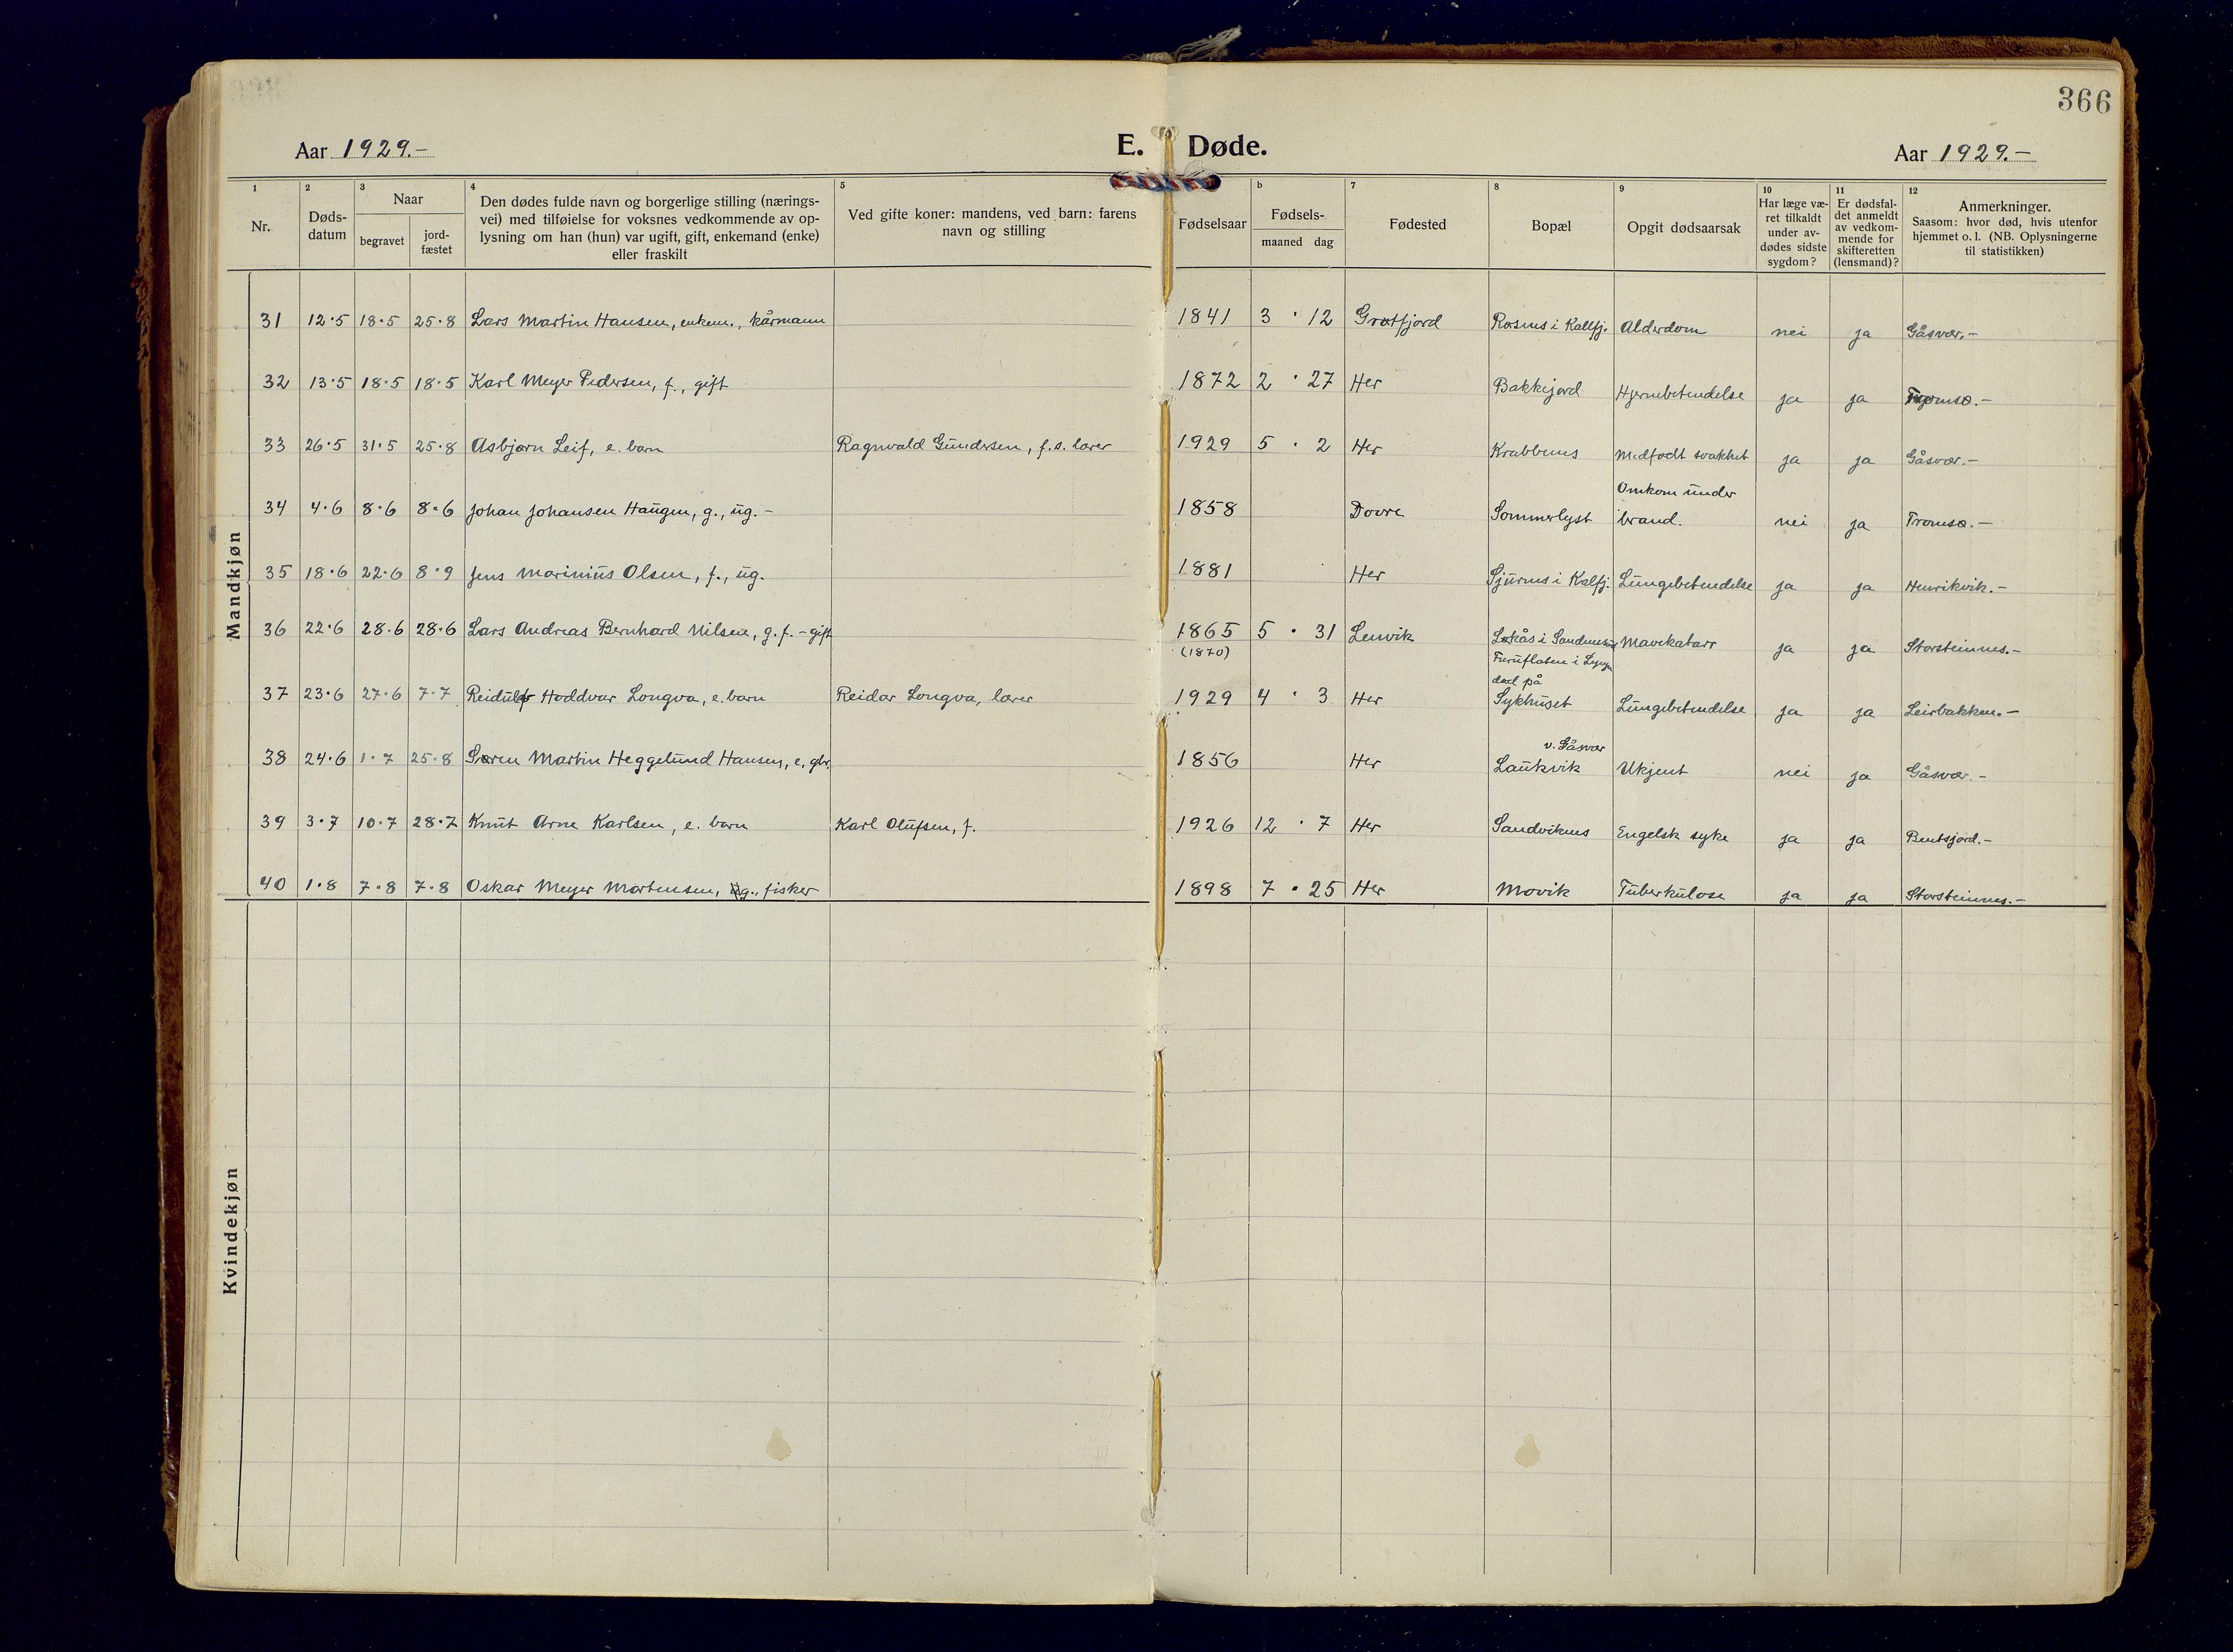 366
Aar 1929.-
E. Døde.
Aar 1929.-
1 Nr.
2 Døds-datum
3 Naar begravet jord-fæstet
4 Den dødes fulde navn og borgerlige stilling (nærings-
vei) med tilføielse for voksnes vedkommende av op-
lysning om han (hun) var ugift, gift, enkemand (enke)
eller fraskilt
5 Ved gifte koner: mandens, ved barn: farens
navn og stilling
Fødselsaar
b Fødsels- maaned dag
7 Fødested
8 Bopæl
9 Opgit dødsaarsak
10 Har læge væ-
ret tilkaldt
under av-
dødes sidste
sygdom?
11 Er dødsfal-
det anmeldt
av vedkom-
mende for
skifteretten
(lensmand)?
12 Anmerkninger.
Saasom: hvor død, hvis utenfor
hjemmet o. l. (NB. Oplysningerne
til statistikken)
Mandkjøn
31 12·5 18·5 25·8 Lars Martin Hansen, enkem., kårmann 1841 3 · 12 Grøtfjord Rosnes i Kalfj. Alderdom nei ja Gåsvær.-
32 13·5 18·5 18·5 Karl Meyer Pedersen, f., gift 1872 2 · 27 Her Bakkejord Hjernebetendelse ja ja Tromsø.-
33 26·5 31·5 25·8 Asbjørn Leif, e. barn Ragnvald Gundersen, f.s. lærer 1929 5 · 2 Her Krabbenes Medfødt svakhet ja ja Gåsvær.-
34 4·6 8·6 8·6 Johan Johansen Haugen, g., ug.- 1858 Dovre Sommerlyst Omkom under
brand. nei ja Tromsø.-
35 18·6 22·6 8·9 Jens Marinius Olsen, f., ug. 1881 Her Sjursnes i Kalfj. Lungebetendelse ja ja Henrikvik.-
36 22·6 28·6 28·6 Lars Andreas Bernhard Nilsen, g. f. - gift 1865 5 · 31 Lenvik Løkås i Mavekatarr ja ja Storsteinnes.-
(1870) Furuflaten i Lyngen
37 23·6 27·6 7·7 Reidulf Hoddvar Longva, e. barn Reidar Longva, lærer 1929 4 · 3 Her død på
Sykhuset Lungebetendelse ja ja Leirbakken.-
38 24·6 1·7 25·8 Søren Martin Heggelund Hansen, e, gbr. 1856 Her v. Gåsvær
Laukvik Ukjent nei ja Gåsvær.-
39 3·7 10·7 28·7 Knut Arne Karlsen, e. barn Karl Olufsen, f. 1926 12 · 7 Her Sandviknes Engelsk syke ja ja Bentsjord.-
40 1·8 7·8 7·8 Oskar Meyer Mortensen, ug., fisker 1898 7 · 25 Her Movik Tuberkulose ja ja Storsteinnes.-
Kvindekjøn